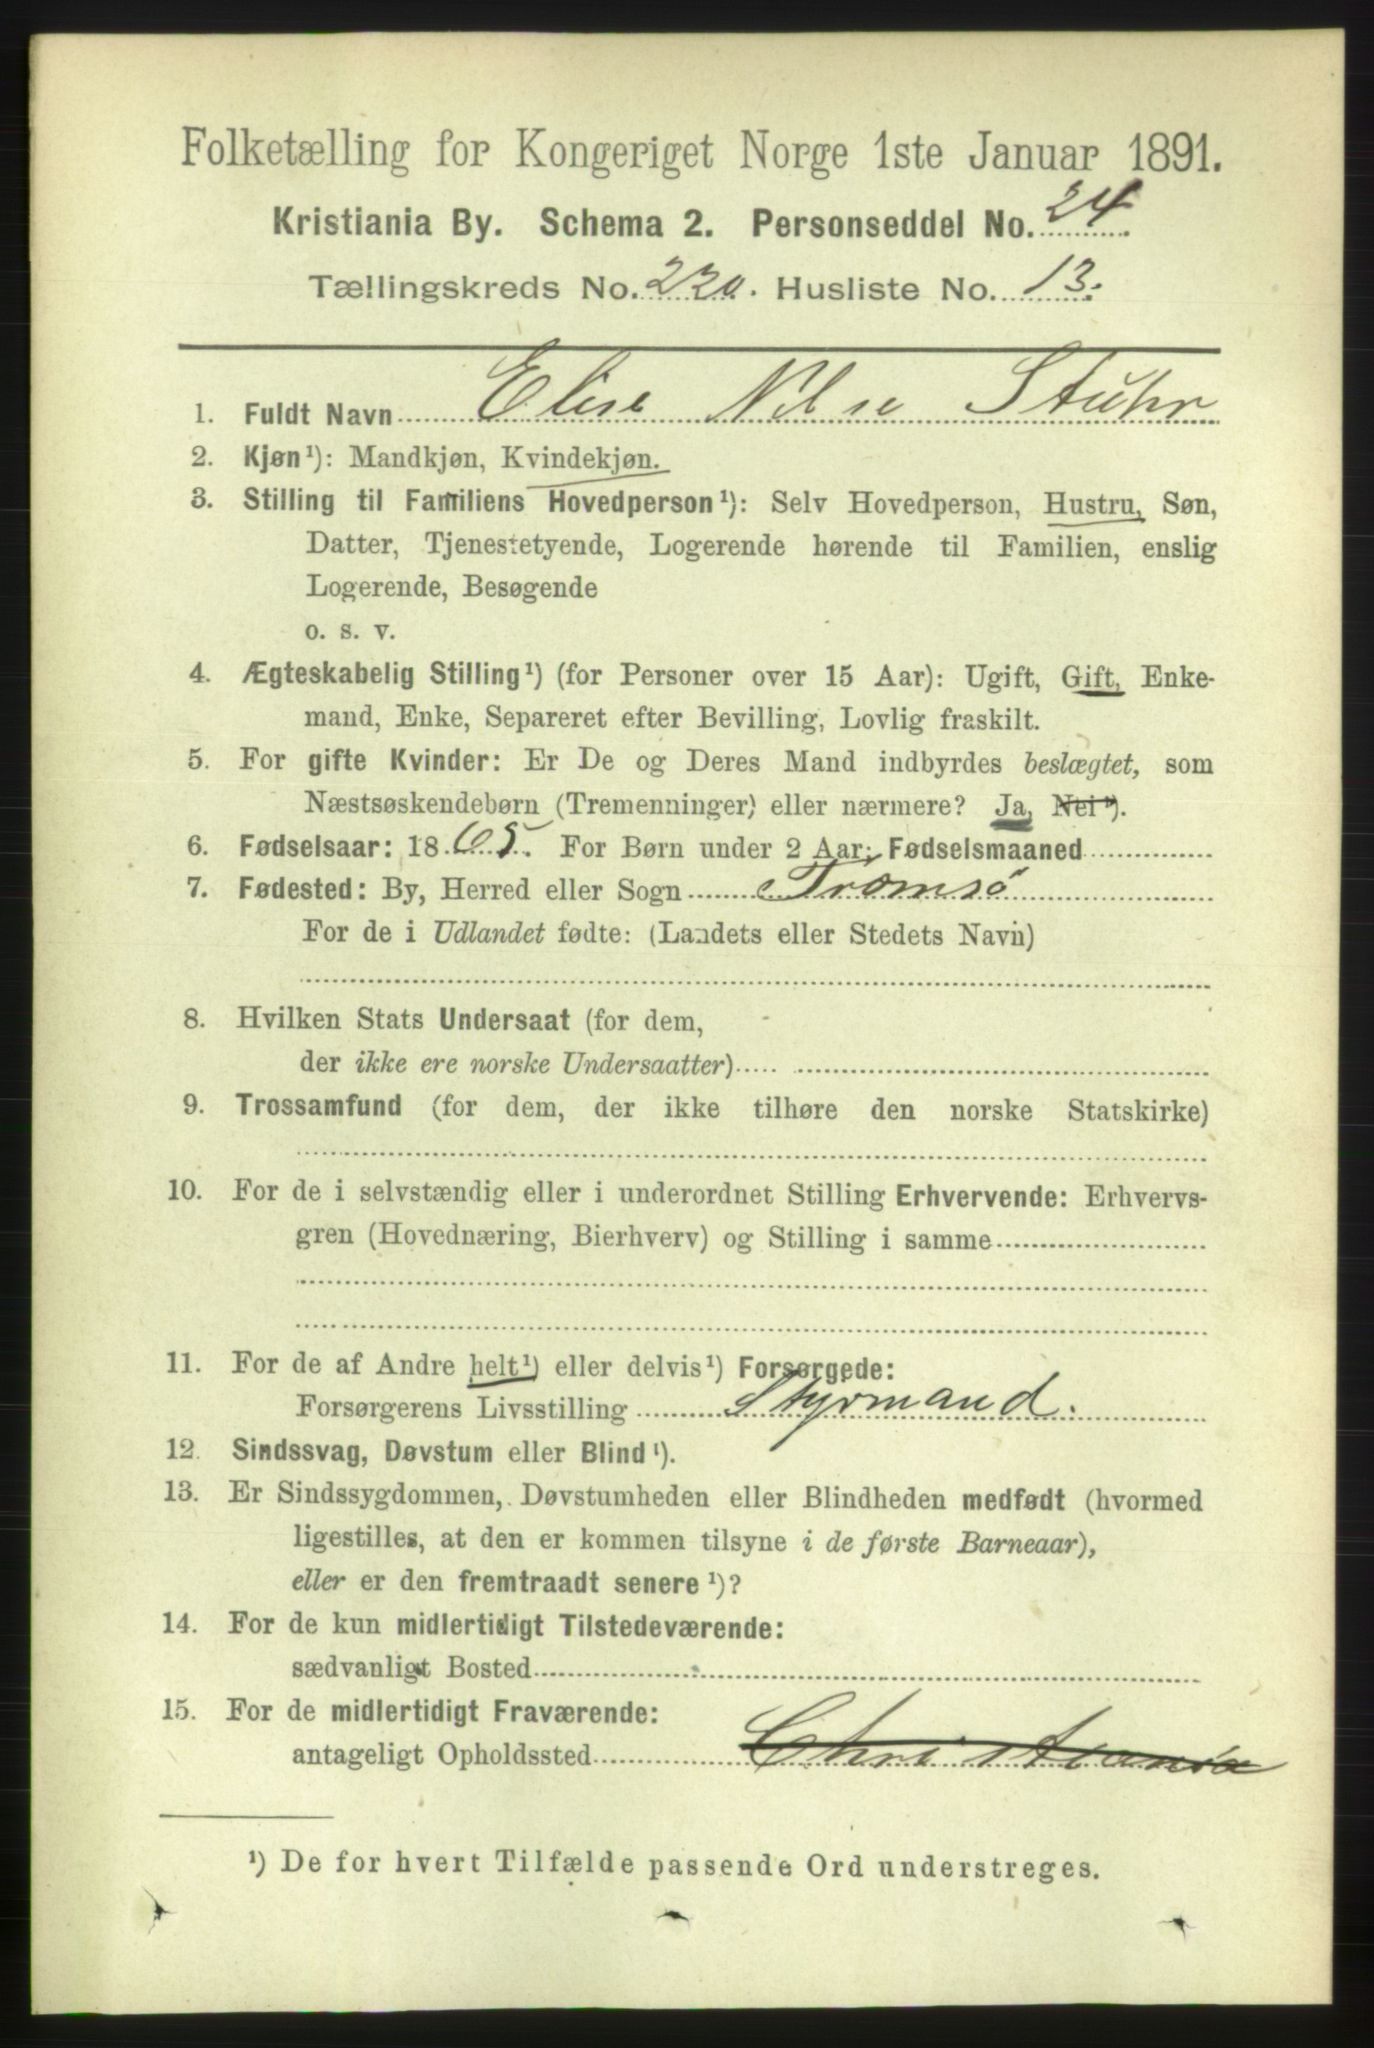 Folketælling for Kongeriget Norge 1ste Januar 1891.
Kristiania By. Schema 2. Personseddel No. 24
Tællingskreds No. 220. Husliste No. 13.
1. Fuldt Navn Elise Nilse Stuhr
2. Kjøn¹): Mandkjøn, Kvindekjøn.
3. Stilling til Familiens Hovedperson¹): Selv Hovedperson, Hustru, Søn,
Datter, Tjenestetyende, Logerende hørende til Familien, enslig
Logerende, Besøgende
o. s. v.
4. Ægteskabelig Stilling¹) (for Personer over 15 Aar): Ugift, Gift, Enke-
mand, Enke, Separeret efter Bevilling, Lovlig fraskilt.
5. For gifte Kvinder: Er De og Deres Mand indbyrdes beslægtet, som
Næstsøskendebørn (Tremenninger) eller nærmere? Ja, Nei¹).
6. Fødselsaar: 1865. For Børn under 2 Aar: Fødselsmaaned
7. Fødested: By, Herred eller Sogn Tromsø
For de i Udlandet fødte: (Landets eller Stedets Navn)
8. Hvilken Stats Undersaat (for dem,
der ikke ere norske Undersaatter)
9. Trossamfund (for dem, der ikke tilhøre den norske Statskirke)
10. For de i selvstændig eller i underordnet Stilling Erhvervende: Erhvervs-
gren (Hovednæring, Bierhverv) og Stilling i samme
11. For de af Andre helt¹) eller delvis¹) Forsørgede:
Forsørgerens Livsstilling Styrmand.
12. Sindssvag, Døvstum eller Blind¹).
13. Er Sindssygdommen, Døvstumheden eller Blindheden medfødt (hvormed
ligestilles, at den er kommen tilsyne i de første Barneaar),
eller er den fremtraadt senere¹)?
14. For de kun midlertidigt Tilstedeværende:
sædvanligt Bosted
15. For de midlertidigt Fraværende:
antageligt Opholdssted Christiania
¹) De for hvert Tilfælde passende Ord understreges.